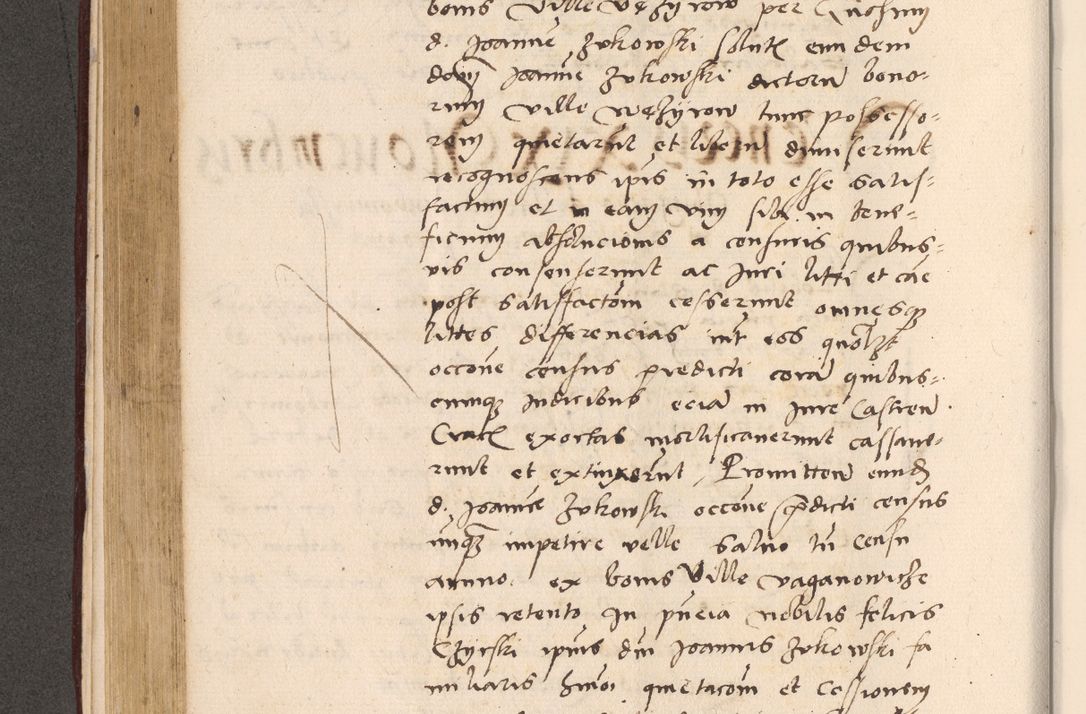 bonis Ville Vężyrow per Gnosum
d. Joanne Zukowski solut eun dem
dom Joanne Zukowski dictoru bono-
rum Ville Wężyrow tunc possesso-
rem quietarut et liberu dimiserunt
recognoscens ipis in toto esse satis-
factum et in eam vim sibi in bene-
ficium absolucionis a censuris quibus-
vis consenserunt ac Juri litti et cae
post satisfactom cesserunt omnesq
littes differencias int eos quolzt
occone census predicti cora quibus-
cumq Judicibus ecia in Jure Castren
Crac exortas mortificauerunt cassaue-
runt et extinxerut, Promitten eund
d. Joanne Zukowski occone pdicti census
nuq impetire velle saluo tn censu
annuo ex bonis Ville Vaganowicze
ipsis retento In pncia nobilis felicis
Czyrski ipius dni Joannis Zukowski fa
miliaris hmoi quietacom et Cessionem